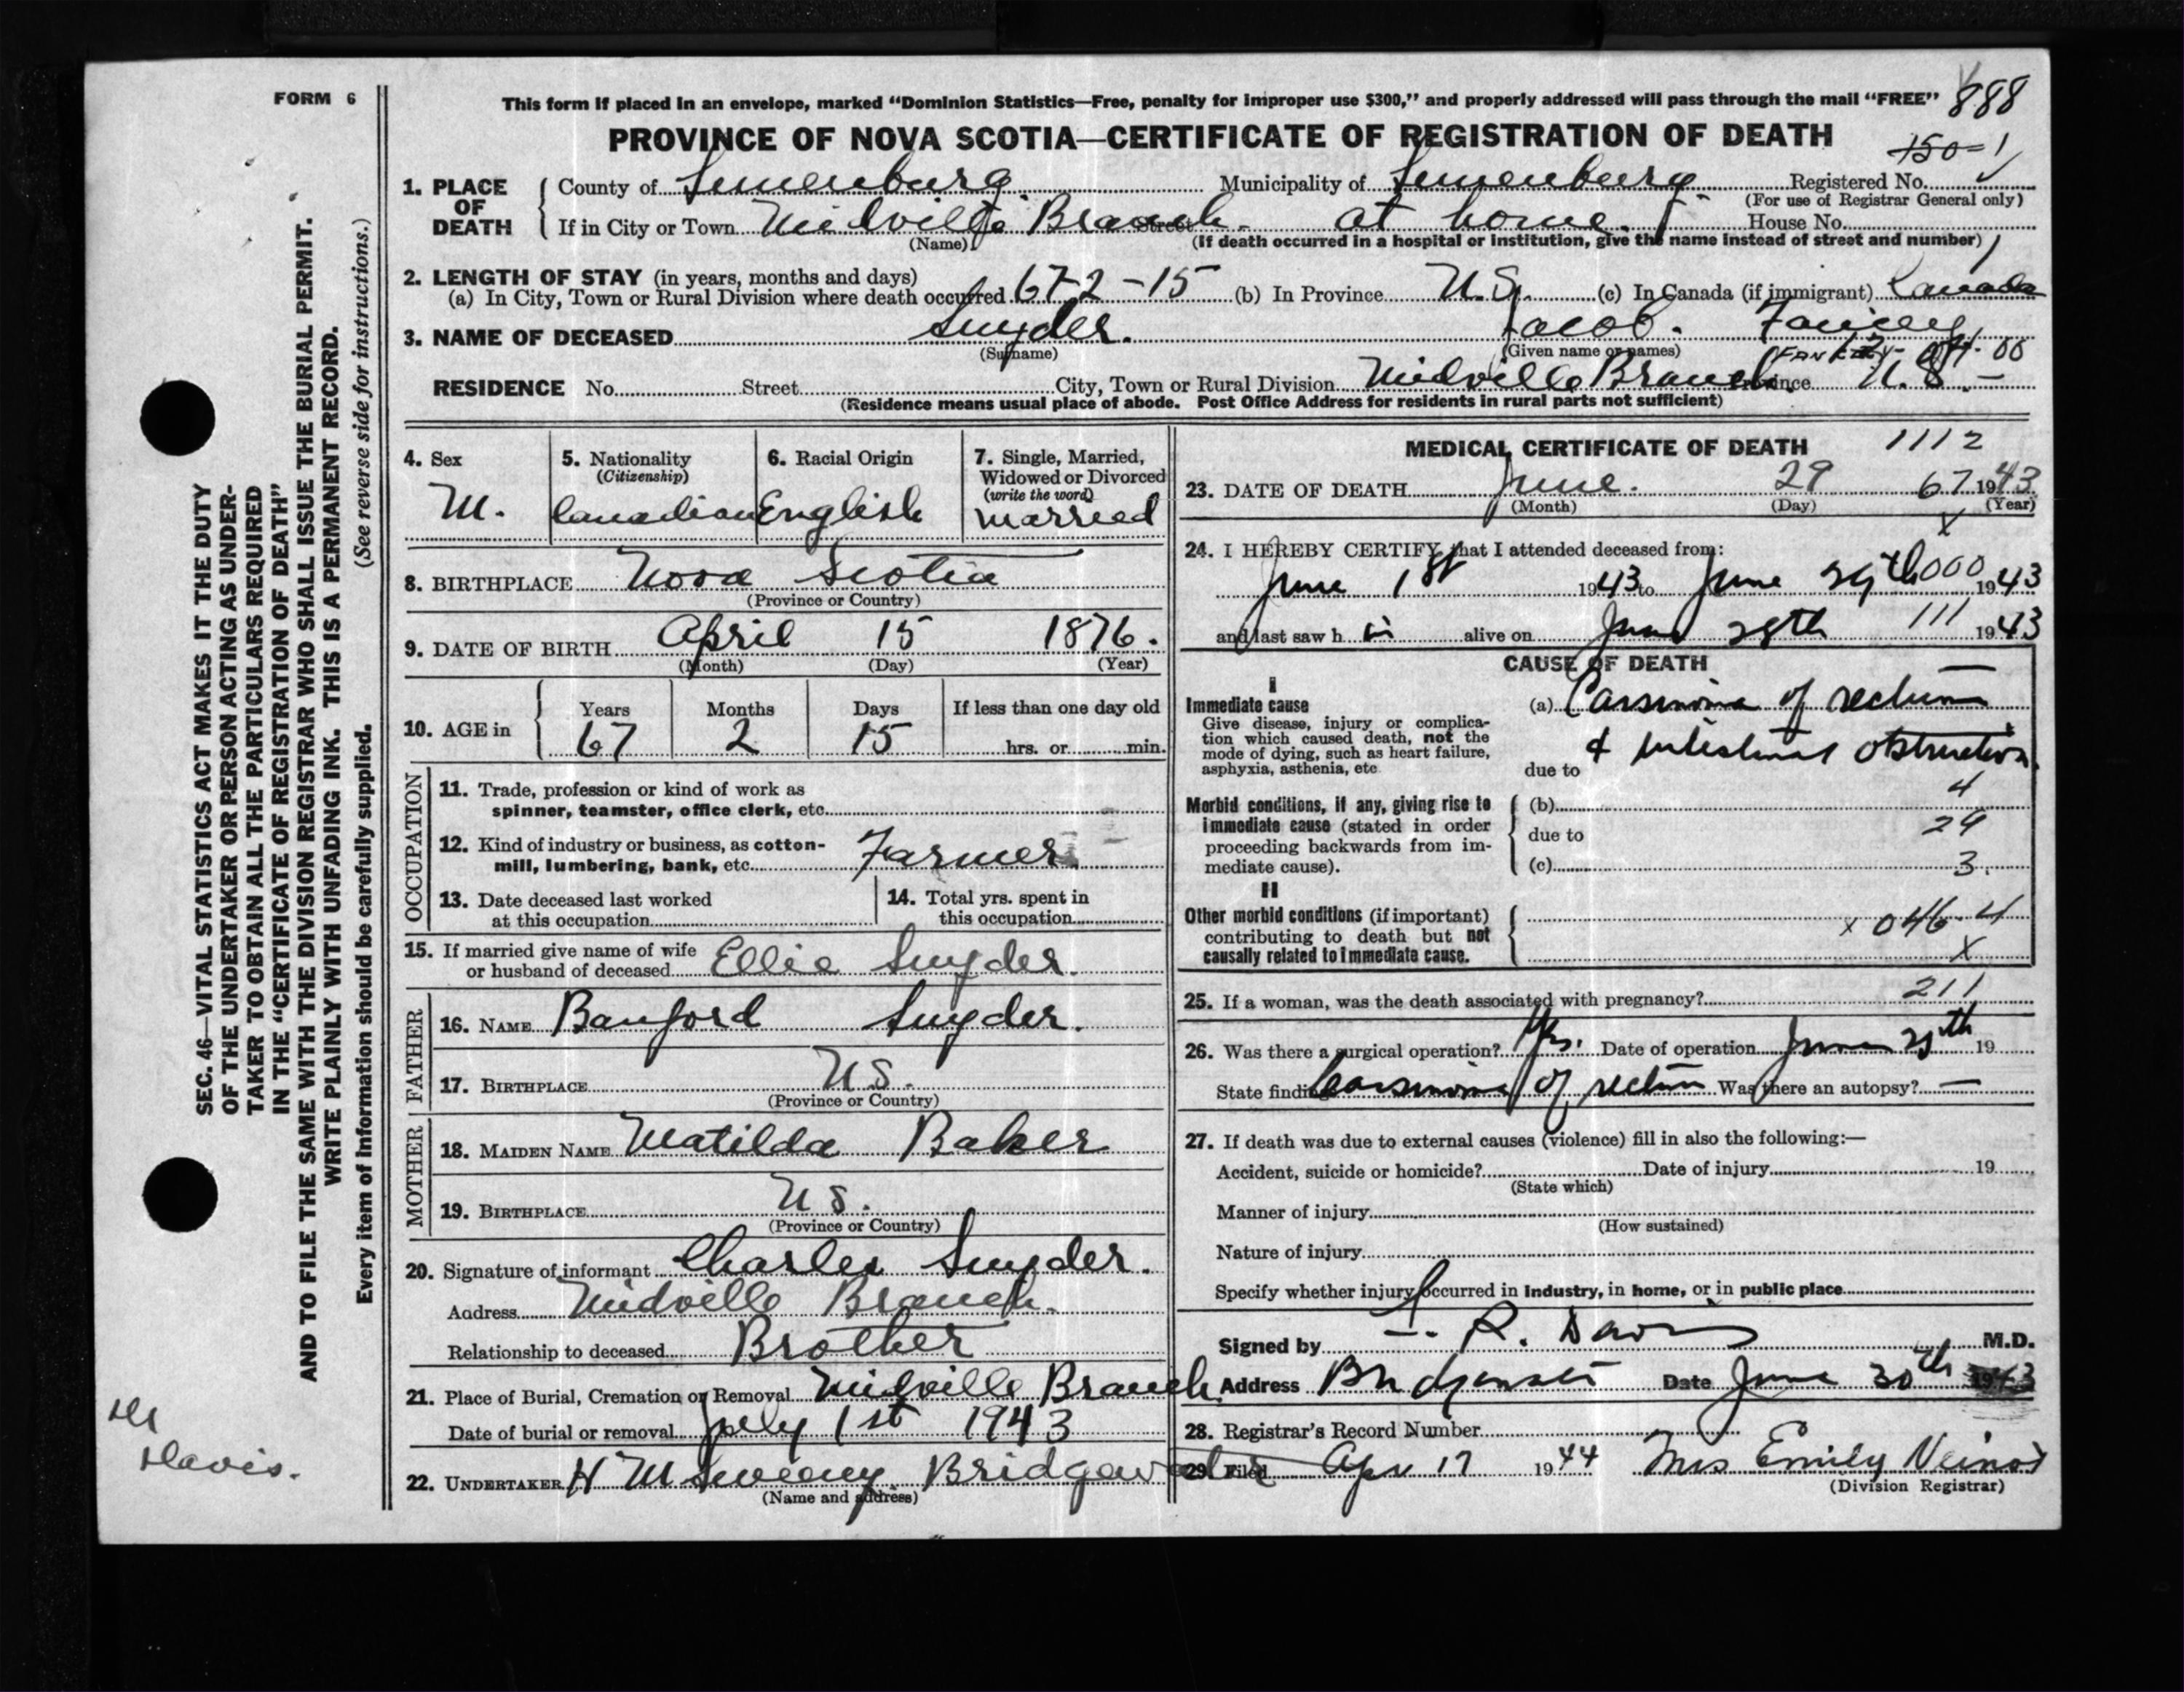 FORM 6
This form if placed in an envelope, marked "Dominion Statistics—Free, penalty for improper use $300," and properly addressed will pass through the mail "FREE"
888
PROVINCE OF NOVA SCOTIA—CERTIFICATE OF REGISTRATION OF DEATH
150-1
1. PLACE OF DEATH
County of Lunenburg Municipality of Lunenburg Registered No.
(For use of Registrar General only)
If in City or Town Midville Branch. Street at home. House No.
(Name) (If death occurred in a hospital or institution, give the name instead of street and number)
2. LENGTH OF STAY (in years, months and days)
(a) In City, Town or Rural Division where death occurred 67-2-15 (b) In Province N.S. (c) In Canada (if immigrant) Canada
3. NAME OF DECEASED Snyder. Jacob.
(Surname) (Given name or names)
RESIDENCE No. Street City, Town or Rural Division Midville Branch Province N.S.
(Residence means usual place of abode. Post Office Address for residents in rural parts not sufficient)
4. Sex
M.
5. Nationality
(Citizenship)
Canadian
6. Racial Origin
English
7. Single, Married, Widowed or Divorced
(write the word)
Married
8. BIRTHPLACE Nova Scotia
(Province or Country)
9. DATE OF BIRTH April 15 1876.
(Month) (Day) (Year)
10. AGE in Years Months Days If less than one day old
67 2 15 hrs. or min.
OCCUPATION
11. Trade, profession or kind of work as
spinner, teamster, office clerk, etc.
12. Kind of industry or business, as cotton-
mill, lumbering, bank, etc. Farmer.
13. Date deceased last worked
at this occupation
14. Total yrs. spent in
this occupation
15. If married give name of wife
or husband of deceased Ellie Snyder.
FATHER
16. NAME Banford Snyder.
17. BIRTHPLACE N.S.
(Province or Country)
MOTHER
18. MAIDEN NAME Matilda Baker
19. BIRTHPLACE N.S.
(Province or Country)
20. Signature of informant Charles Snyder.
Address Midville Branch.
Relationship to deceased Brother
21. Place of Burial, Cremation or Removal Midville Branch.
Date of burial or removal July 1st 1943
22. UNDERTAKER H McSweeny Bridgewater
(Name and address)
MEDICAL CERTIFICATE OF DEATH 1112
23. DATE OF DEATH June. 29 67 1943
(Month) (Day) (Year)
X
24. I HEREBY CERTIFY that I attended deceased from:
June 1st 1943 to June 29th 000 1943
and last saw h im alive on June 28th 111 1943
CAUSE OF DEATH
I
Immediate cause
Give disease, injury or complica-
tion which caused death, not the
mode of dying, such as heart failure,
asphyxia, asthenia, etc.
(a) Carsinoma of rectum
& intestinal obstruction.
due to
4
Morbid conditions, if any, giving rise to
immediate cause (stated in order
proceeding backwards from im-
mediate cause).
(b)
due to 29
(c) 3.
II
Other morbid conditions (if important)
contributing to death but not
causally related to immediate cause.
x 046-4
X
25. If a woman, was the death associated with pregnancy? 211
26. Was there a surgical operation? Yes. Date of operation June 19
State findings Carsinoma of rectum Was there an autopsy? —
27. If death was due to external causes (violence) fill in also the following:—
Accident, suicide or homicide? Date of injury 19
(State which)
Manner of injury
(How sustained)
Nature of injury
Specify whether injury occurred in industry, in home, or in public place
Signed by R. Davis M.D.
Address Bridgewater Date June 30th 1943
28. Registrar's Record Number
29. Filed Apr 17 1944 Mrs Emily
(Division Registrar)
SEC. 46—VITAL STATISTICS ACT MAKES IT THE DUTY
OF THE UNDERTAKER OR PERSON ACTING AS UNDER-
TAKER TO OBTAIN ALL THE PARTICULARS REQUIRED
IN THE "CERTIFICATE OF REGISTRATION OF DEATH"
AND TO FILE THE SAME WITH THE DIVISION REGISTRAR WHO SHALL ISSUE THE BURIAL PERMIT.
WRITE PLAINLY WITH UNFADING INK. THIS IS A PERMANENT RECORD.
Every item of information should be carefully supplied. (See reverse side for instructions.)
Dr
Davis.